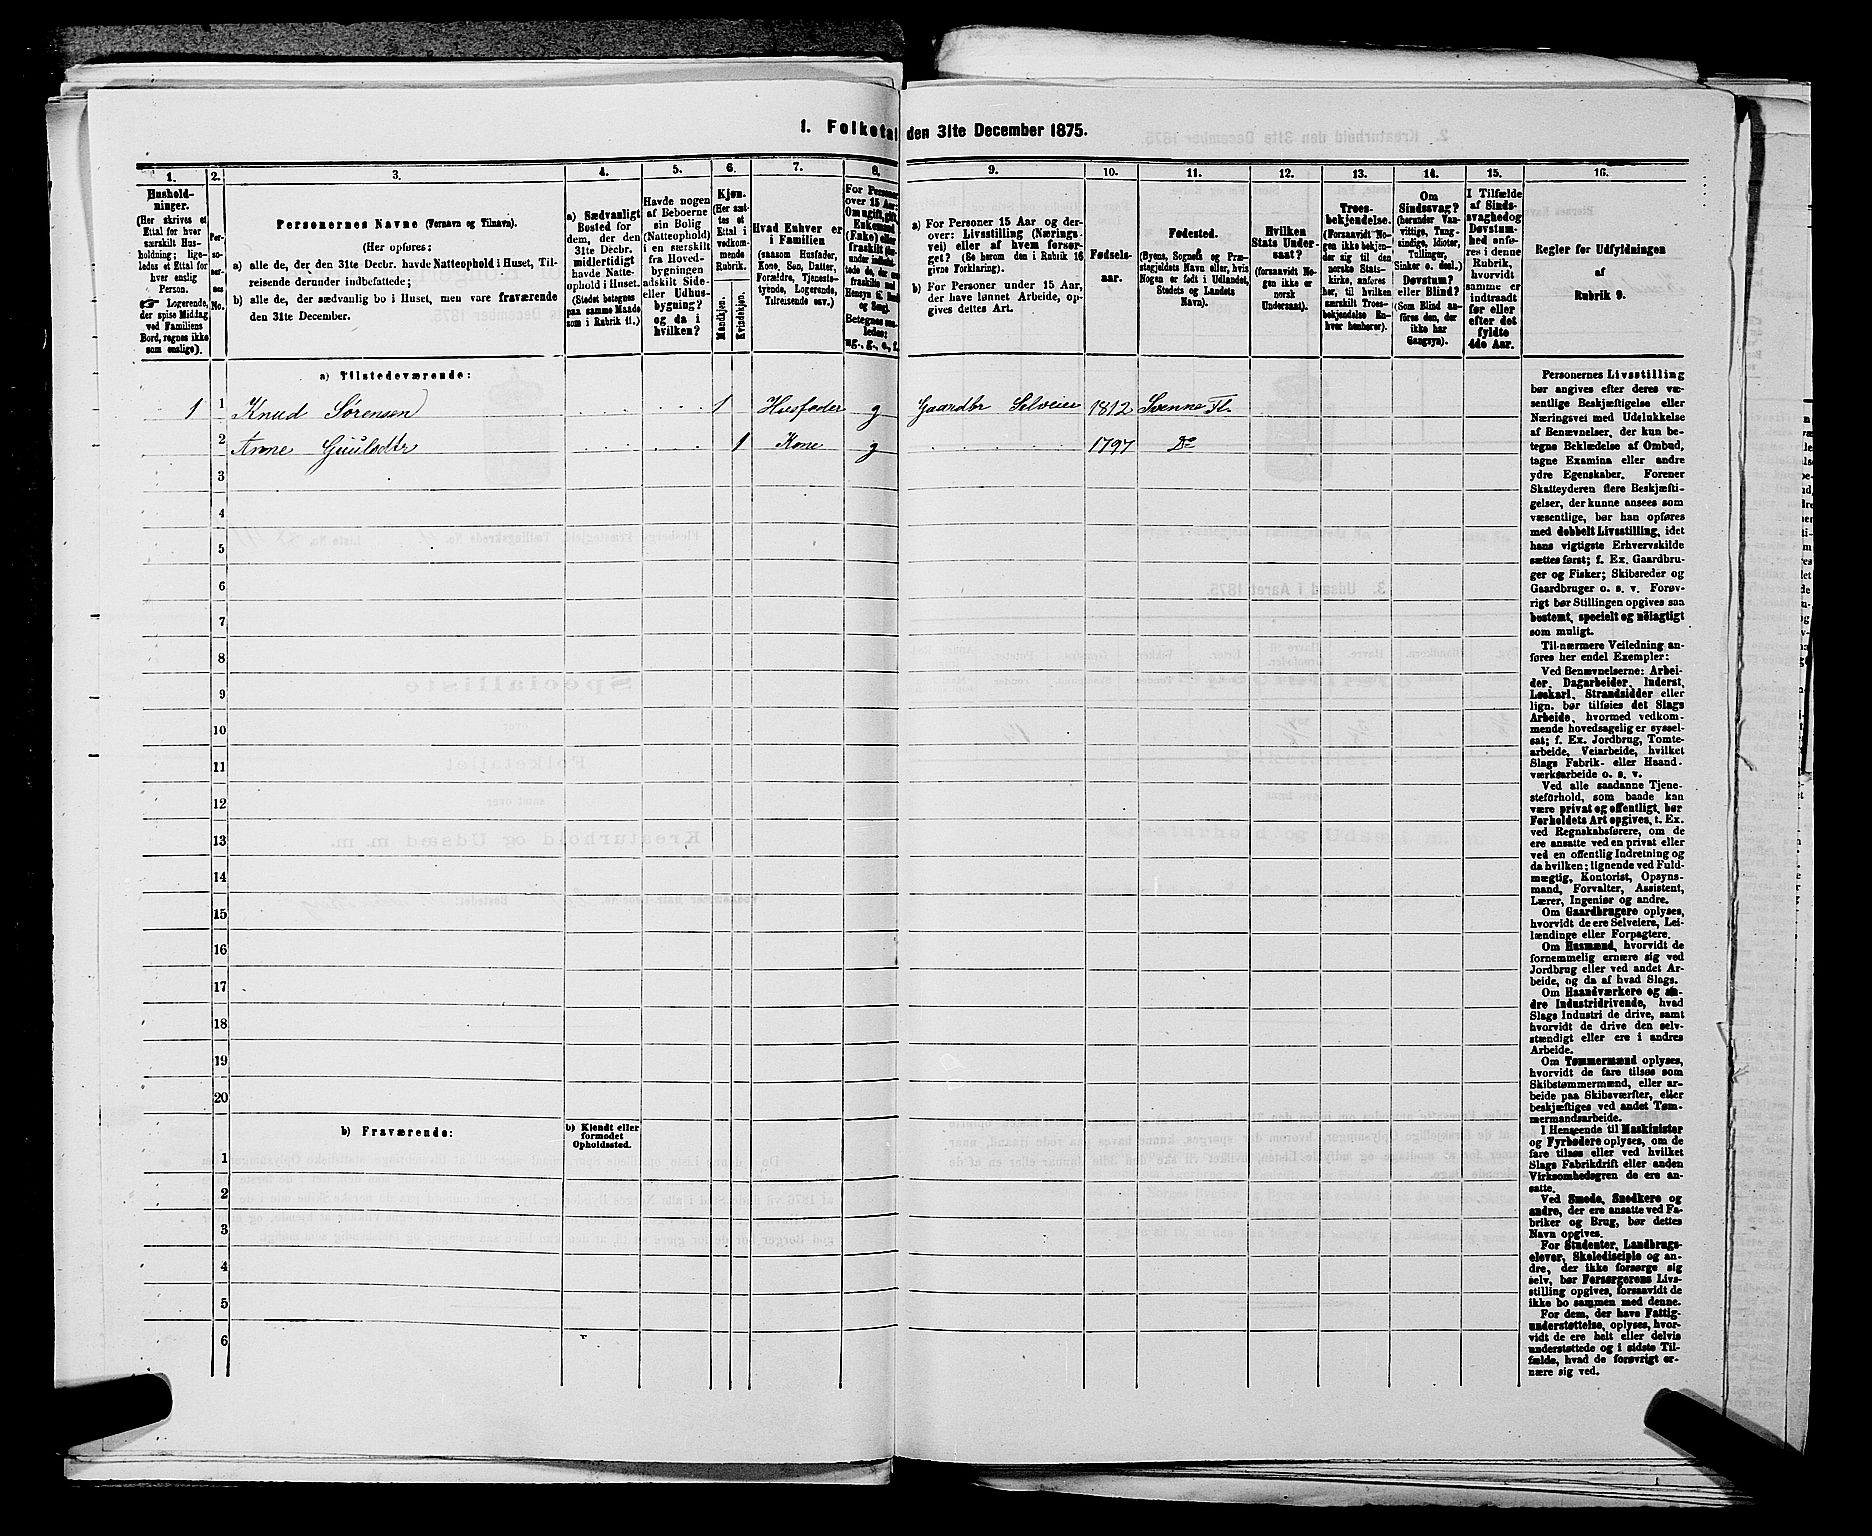 1. Folketal den 31te December 1875.
1.
Hushold-
ninger.
(Her skrives et
Ettal for hver
særskilt Hus-
holdning; lige-
ledes et Ettal for
hver enslig
Person.
☞ Logerende,
der spise Middag
ved Familiens
Bord, regnes ikke
som enslige).
2.
Per-
so-
ner-
nes
No.
3.
Personernes Navne (Fornavn og Tilnavn).
(Her opføres:
a) alle de, der den 31te Decbr. havde Natteophold i Huset, Til-
reisende derunder indbefattede;
b) alle de, der sædvanlig bo i Huset, men vare fraværende
den 31te December.
4.
a) Sædvanligt
Bosted for
dem, der den
31te Decbr.
midlertidigt
havde Natte-
ophold i Huset.
(Stedet betegnes
paa samme Maade
som i Rubrik 11.)
5.
Havde nogen
af Beboerne
sin Bolig
(Natteophold)
i en særskilt
fra Hoved-
bygningen
adskilt Side-
eller Udhus-
bygning?
og da i
hvilken?
6.
Kjøn.
(Her sæt-
tes et
Ettal i
vedkom-
mende
Rubrik.
Mandkjøn.
Kvindekjøn.
7.
Hvad Enhver er
i Familien
(saasom Husfader,
Kone, Søn, Datter,
Forældre, Tjeneste-
tyende, Logerende,
Tilreisende osv.)
8.
For Personer
over 15 Aar:
Om ugift, gift,
Enkemand
(Enke) eller
fraskilt
Betegnes saa-
ledes:
ug., g., e., f.
9.
a) For Personer 15 Aar og der-
over: Livsstilling (Nærings-
vei) eller af hvem forsør-
get? (Se herom den i Rubrik 16
givne Forklaring).
b) For Personer under 15 Aar,
der have lønnet Arbeide, op-
gives dettes Art.
10.
Fødsels-
aar.
11.
Fødested.
(Byens, Sognets og Præ-
stegjeldets Navn eller, hvis
Nogen er født i Udlandet,
Stedets og Landets
Navn).
12.
Hvilken
Stats Under-
saat?
(foraavidt No-
gen ikke er
norsk
Undersaat).
13.
Troes-
bekjendelse.
(Forsaavidt No-
gen ikke bekjen-
der sig til den
norske Stats-
kirke, anføres
her, til hvilken
særskilt Troes-
bekjendelse En-
hver henhører).
14.
Om
Sindssvag?
(herunder Van-
vittige, Tung-
sindige, Idioter,
Tullinger,
Sinker o. desl.)
Døvstum?
eller Blind?
(Som Blind an-
føres den, der
ikke har
Gangsyn).
15.
I Tilfælde
af Sinds-
svaghed og
Døvstum-
hed anfø-
res i denne
Rubrik,
hvorvidt
samme er
indtraadt
før eller
efter det
fyldte
4de Aar.
16.
Regler for Udfyldningen
af
Rubrik 9.
a) Tilstedeværende:
1 1 Knud Sørensen 1 Husfader g Gaardbr Selveier 1812 Svenne Fl.
2 Anne Guulsdtr 1 Kone g 1797 Do
3
4
5
6
7
8
9
10
11
12
13
14
15
16
17
18
19
20
b) Fraværende:
b) Kjendt eller
formodet
Opholdssted.
1
2
3
4
5
6
Personernes Livsstilling
bør angives efter deres væ-
sentlige Beskjæftigelse eller
Næringsvei med Udelukkelse
af Benævnelser, der kun be-
tegne Beklædelse af Ombud,
tagne Examina eller andre
ydre Egenskaber. Forener
Skatteyderen flere Beskjæfti-
gelser, der kunne ansees som
væsentlige, bør han opføres
med dobbelt Livsstilling, idet
hans vigtigste Erhvervskilde
sættes først; f. Ex. Gaardbru-
ger og Fisker; Skibsreder og
Gaardbruger o. s. v. Forøv-
rigt bør Stillingen opgives saa
bestemt, specielt og nöiagtigt
som muligt.
Til nærmere Veiledning an-
føres her endel Exempler:
Ved Benævnelserne: Arbei-
der, Dagarbeider, Inderst,
Løskarl, Strandsidder eller
lign. bør tilføies det Slags
Arbeide, hvormed vedkom-
mende hovedsagelig er syssel-
sat; f. Ex. Jordbrug, Tomte-
arbeide, Veiarbeide, hvilket
Slags Fabrik- eller Haand-
værksarbeide o. s. v.
Ved alle saadanne Tjene-
steforhold, som baade kan
være privat og offentligt, bør
Forholdets Art opgives, t. Ex.
ved Regnskabsførere, om de
ere ansatte ved en privat eller
ved en offentlig Indretning og
da hvilken; lignende ved Fuld-
mægtig, Kontorist, Opsyns-
mand, Forvalter, Assistent,
Lærer, Ingeniør og andre.
Om Gaardbrugere oplyses,
hvorvidt de ere Selveiere, Lei-
lændinge eller Forpagtere.
Om Husmænd, hvorvidt de
fornemmelig ernære sig ved
Jordbrug eller ved andet Ar-
beide, og da af hvad Slags.
Om Haandværkere og an-
dre Industridrivende, hvad
Slags Industri de drive, samt
hvorvidt de drive den selv-
stændigt eller ere i andres
Arbeide.
Om Tømmermænd oplyses,
hvorvidt de fare tilsøs som
Skibstømmermænd, eller ar-
beide paa Skibsværfter, eller
beskjæftiges ved andet Tøm-
mermandsarbeide.
I Henseende til Maskinister
og Fyrbødere oplyses, om de
fare tilsøs eller ved hvilket
Slags Fabrikdrift eller anden
Virksomhedsgren de ere an-
satte.
Ved Smede, Snedkere og
andre, der ere ansatte ved Fa-
briker og Brug, bør dettes
Navn opgives.
For Studenter, Landbrugs-
elever, Skoledisciple og an-
dre, der ikke forsørge sig
selv, bør Forsørgerens Livs-
stilling opgives, forsaavidt de
ikke bo sammen med denne.
For dem, der have Fattig-
understøttelse, oplyses, hvor-
vidt de ere helt eller delvis
understøttede og i sidste Til-
fælde, hvad de forøvrigt er-
nære sig ved.